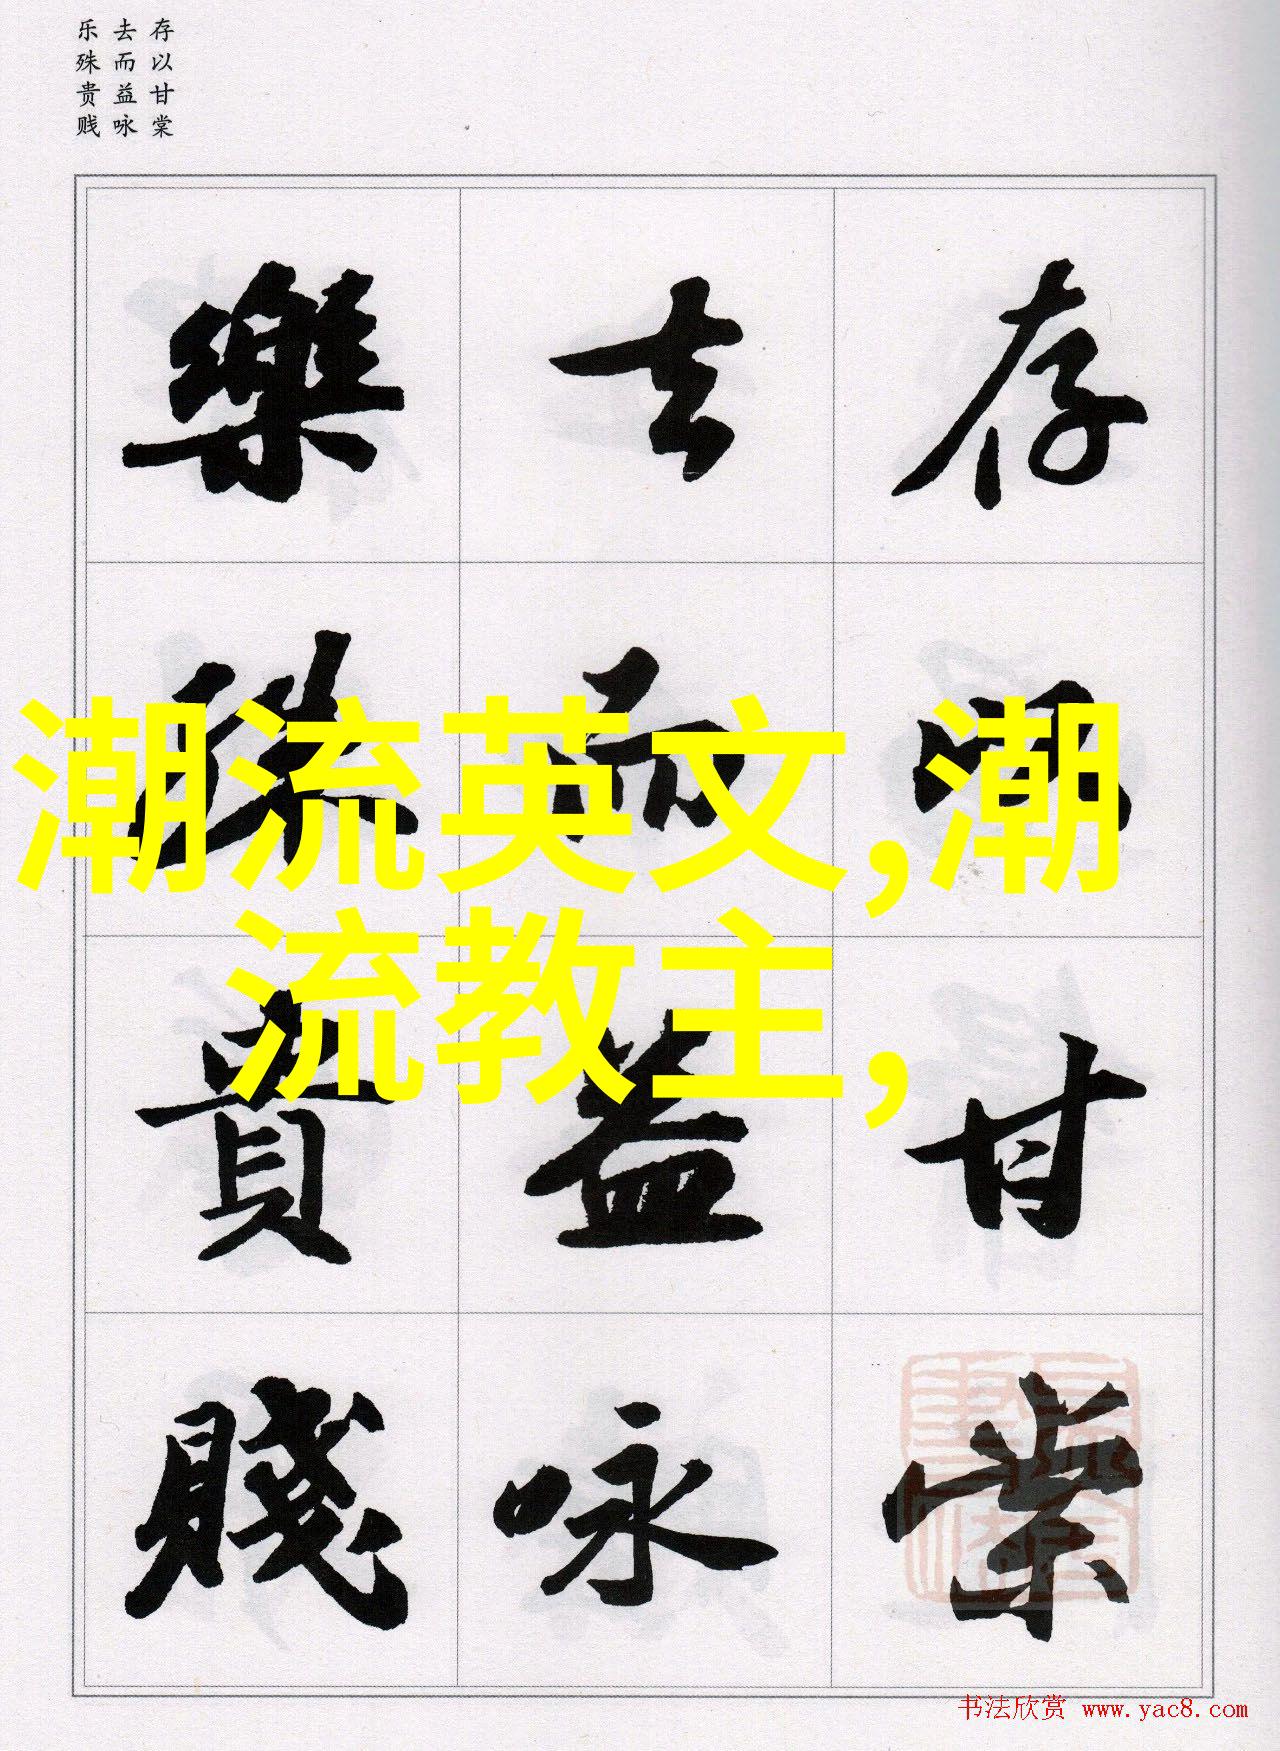 存以甘棠
去而益咏
乐殊贵贱
存以甘棠
去而益咏
樂殊貴賤
潮流英文,潮
流教主,
书法欣赏 www.yac8.com